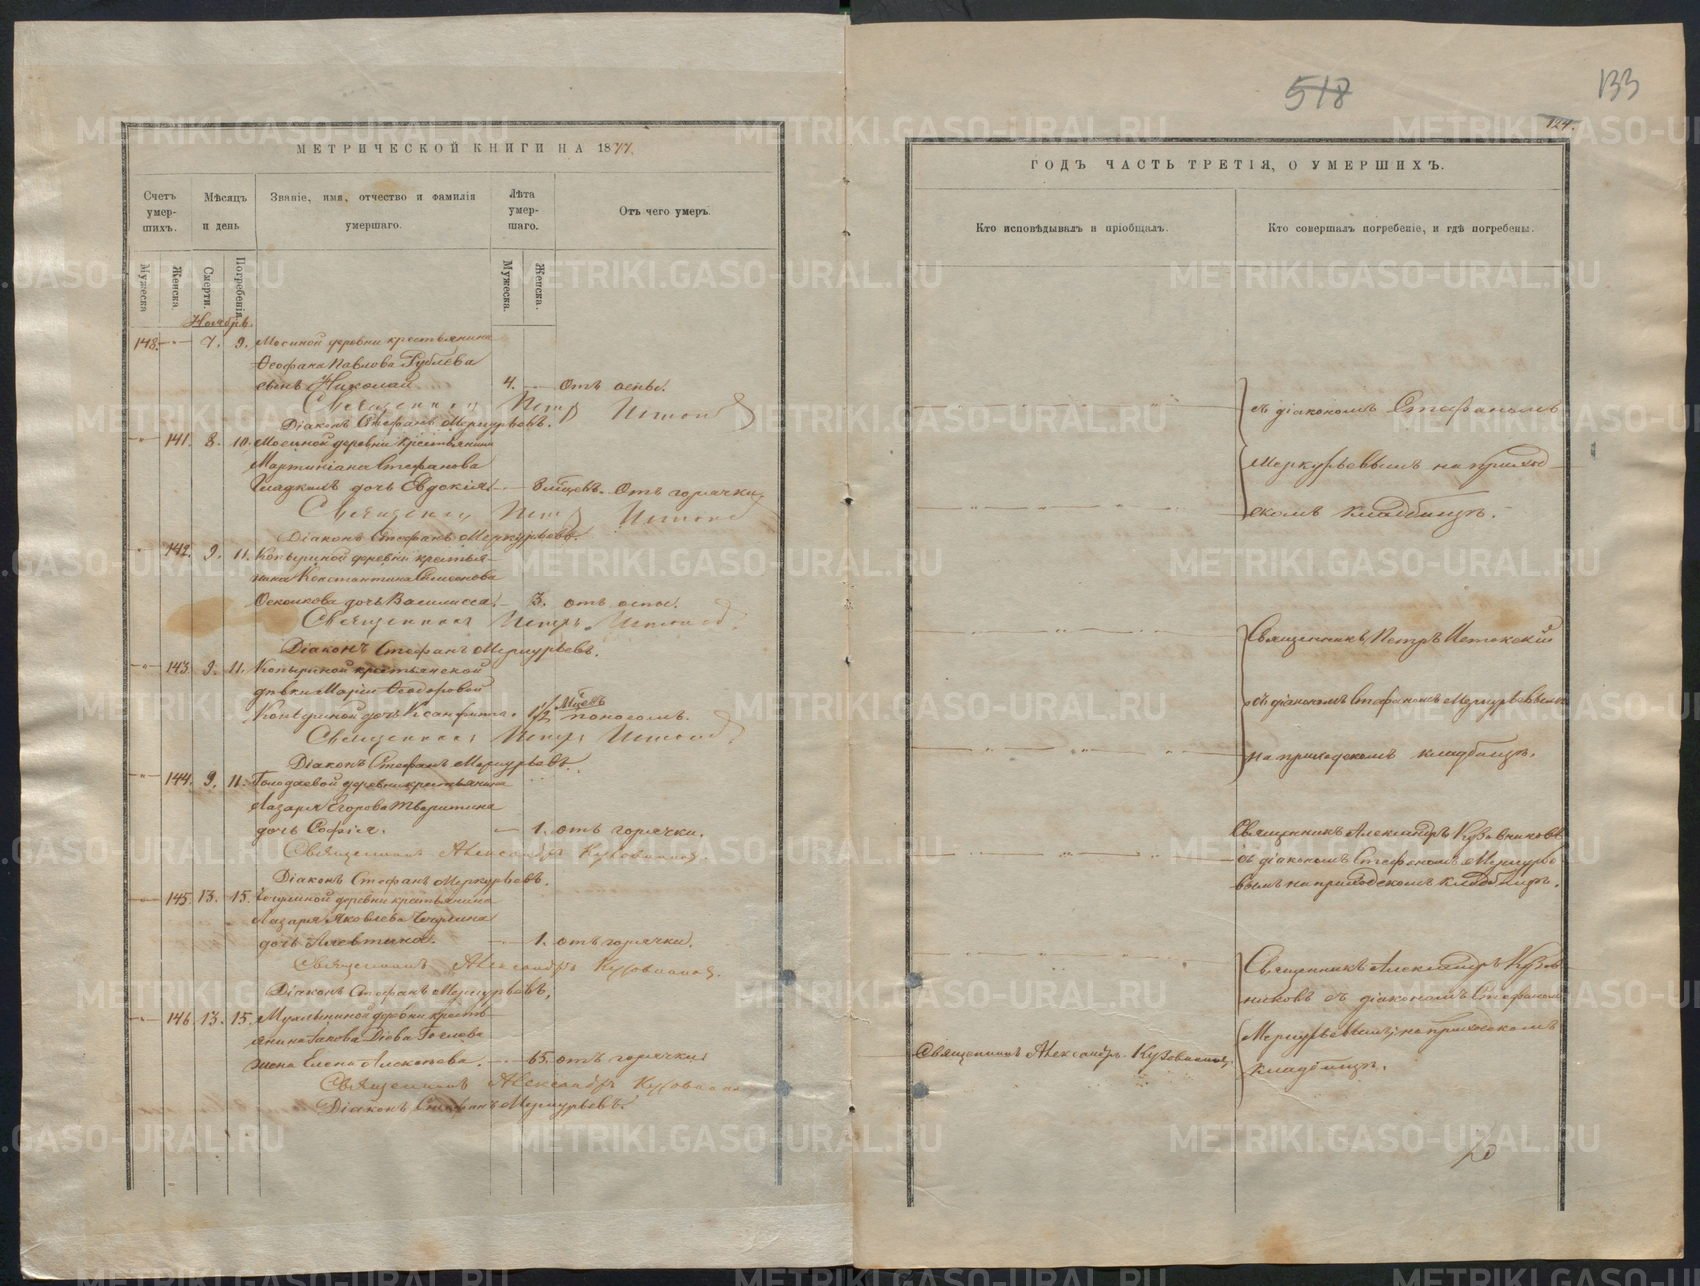 МЕТРИЧЕСКОЙ КНИГИ НА 1877.
Счетъ умер- шихъ.
Мѣсяцъ и день
Званіе, имя, отчество и фамилія умершаго.
Лѣта умер- шаго.
Отъ чего умеръ.
Мужеска
Женска
Смерти.
Погребенія
Мужеска.
Женска.
Ноябрь.
148. 7. 9. Мосиной деревни крестьянина
Ѳеофана Павлова
сынъ Николай 4. отъ оспы.
Священникъ Петръ
Діаконъ Стефанъ Меркурьевъ.
141. 8. 10. Мосиной деревни крестьянина
Мартиніана Стефанова
дочь Евдокія 8 мѣсцевъ. Отъ горячки.
Священникъ Петръ
Діаконъ Стефанъ Меркурьевъ.
142. 9. 11. Копыриной деревни крестья-
нина Константина Симеонова
дочь Василисса. 3. отъ оспы.
Священникъ Петръ
Діаконъ Стефанъ Меркурьевъ.
143 9. 11. Копыриной крестьянской
дѣвки Маріи Ѳеодоровой
Копыриной дочь Ксанфиппа. 1/2 мѣсц. поносомъ.
Священникъ Петръ
Діаконъ Стефанъ Меркурьевъ.
144. 9. 11. деревни крестьянина
Лазаря Егорова
дочь Софія. 1. отъ горячки.
Священникъ Александръ Кузовниковъ.
Діаконъ Стефанъ Меркурьевъ.
145. 13. 15. деревни крестьянина
Лазаря Яковлева
дочь Алевтина. 1. отъ горячки.
Священникъ Александръ Кузовниковъ.
Діаконъ Стефанъ Меркурьевъ.
146. 13. 15. деревни кресть-
янина
жена Елена Алексѣева. 65. отъ горячки
Священникъ Александръ Кузовниковъ
Діаконъ Стефанъ Меркурьевъ.
518
133
124.
ГОДЪ ЧАСТЬ ТРЕТІЯ, О УМЕРШИХЪ.
Кто исповѣдывалъ и пріобщалъ.
Кто совершалъ погребеніе, и гдѣ погребены.
съ діакономъ Стефаномъ
Меркурьевымъ на приход-
скомъ кладбищѣ.
Священникъ Петръ Истокскій
съ діакономъ Стефаномъ Меркурьевымъ
на приходскомъ кладбищѣ.
Священникъ Александръ Кузовниковъ
съ діакономъ Стефаномъ Меркурье
вымъ на приходскомъ кладбищѣ.
Священникъ Александръ Кузов
никовъ съ діакономъ Стефаномъ
Меркурьевымъ; на приходскомъ
кладбищѣ.
Священникъ Александръ Кузовниковъ.
METRIKI.GASO-URAL.RU